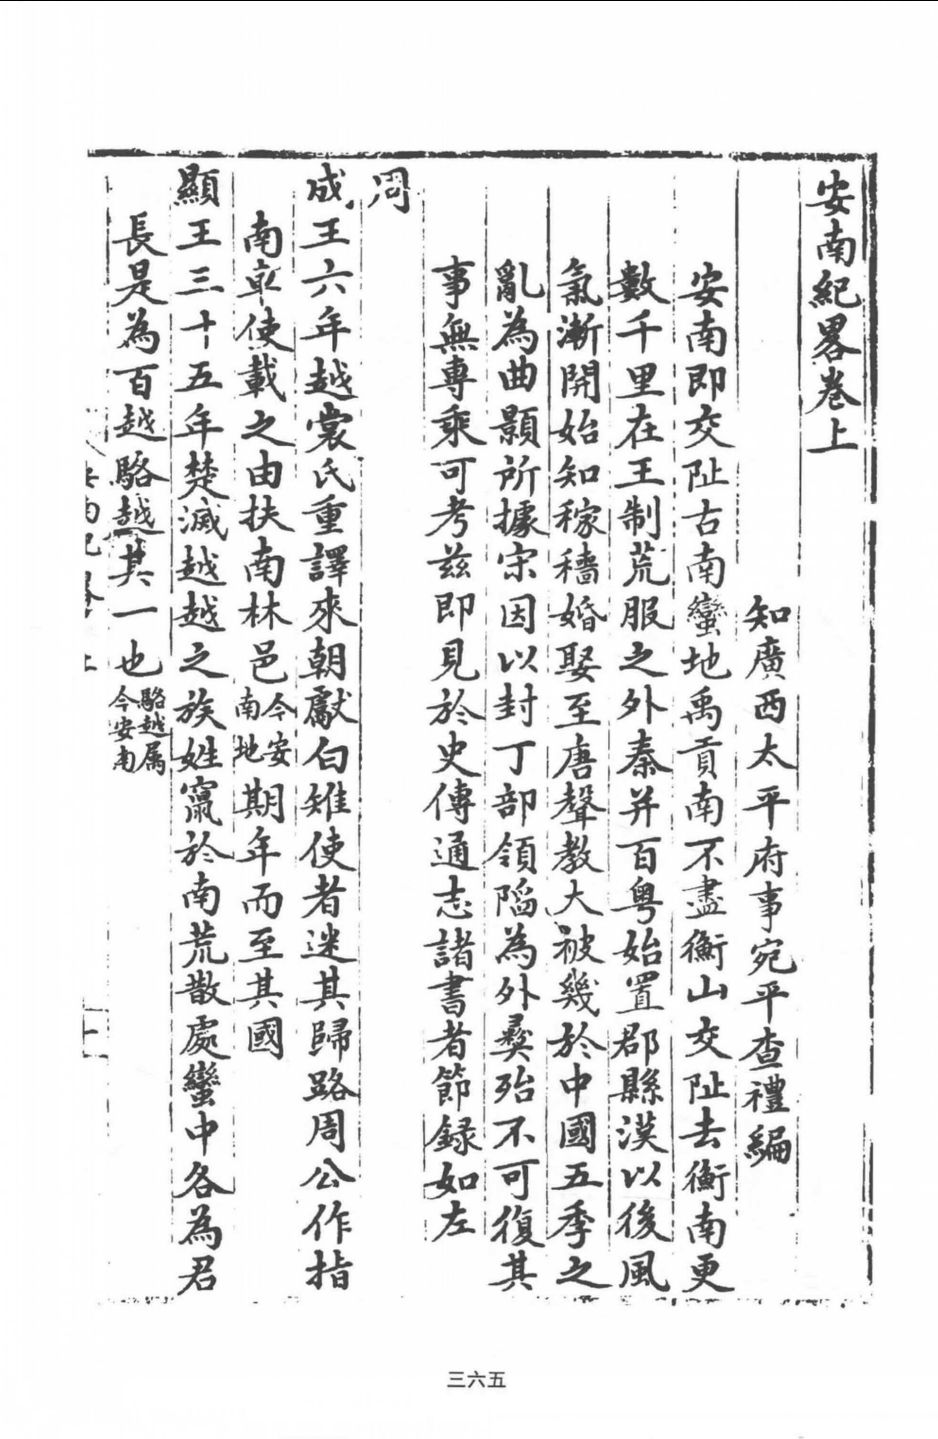 安南紀畧卷上
知廣西太平府事宛平查禮編
安南即交阯古南蠻地禹貢南不盡衡山交阯去衡南更
數千里在王制荒服之外秦并百粵始置郡縣漢以後風
氣漸開始知稼穡婚娶至唐聲教大被幾於中國五季之
亂為曲顥所據宋因以封丁部領陷為外彜殆不可復其
事無專乘可考茲即見於史傳通志諸書者節録如左
周
成王六年越裳氏重譯來朝獻白雉使者迷其歸路周公作指
南車使載之由扶南林邑今安南地期年而至其國
顯王三十五年楚滅越越之族姓竄於南荒散處蠻中各為君
長是為百越駱越其一也駱越属今安南
三六五